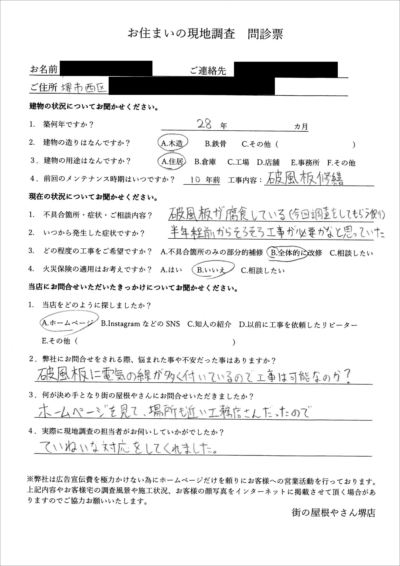 お住まいの現地調査 問診票
お名前 ご連絡先
ご住所 堺市西区
建物の状況についてお聞かせください。
1. 築何年ですか? 28 年 カ月
2. 建物の造りはなんですか? A.木造 B.鉄骨 C.その他( )
3. 建物の用途はなんですか? A.住居 B.倉庫 C.工場 D.店舗 E.事務所 F.その他
4. 前回のメンテナンス時期はいつですか? 10年前 工事内容: 破風板修繕
現在の状況についてお聞かせください。
1. 不具合箇所・症状・ご相談内容? 破風板が腐食している(今回調査をしてもらう便り)
2. いつから発生した症状ですか? 半年程前からそろそろ工事が必要かなと思っていた
3. どの程度の工事をご希望ですか? A.不具合箇所のみの部分的補修 B.全体的に改修 C.相談したい
4. 火災保険の適用はお考えですか? A.はい B.いいえ C.相談したい
当店にお問合せいただいたきっかけについてお聞かせください。
1. 当店をどのように探しましたか?
A.ホームページ B.Instagram などの SNS C.知人の紹介 D.以前に工事を依頼したリピーター
E.その他( )
2. 弊社にお問合せをされる際、悩まれた事や不安だった事はありますか?
破風板に電気の線が多く付いているので工事は可能なのか?
3. 何が決め手となり街の屋根やさんにお問合せいただきましたか?
ホームページを見て、場所も近い工務店さんだったので
4. 実際に現地調査の担当者がお伺いしていかがでしたか?
ていねいな対応をしてくれました。
※弊社は広告宣伝費を極力かけない為にホームページだけを頼りにお客様への営業活動を行っております。
上記内容やお客様宅の調査風景や施工状況、お客様の顔写真をインターネットに掲載させて頂く場合があ
りますのでご協力お願いいたします。
街の屋根やさん堺店